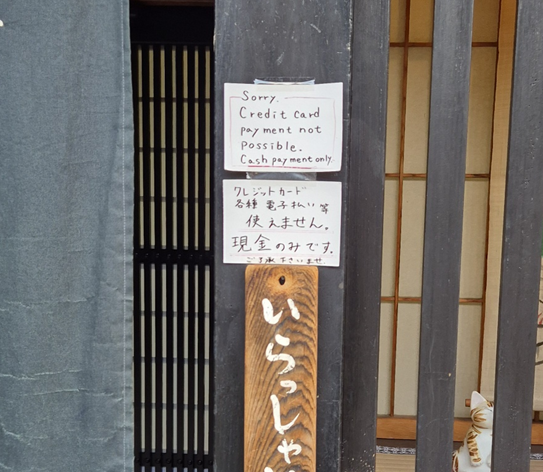 Sorry.
Credit card
payment not
possible.
Cash payment only.
クレジットカード
各種 電子払い 等
使えません。
現金のみです。
ご了承下さいませ
いらっしゃい